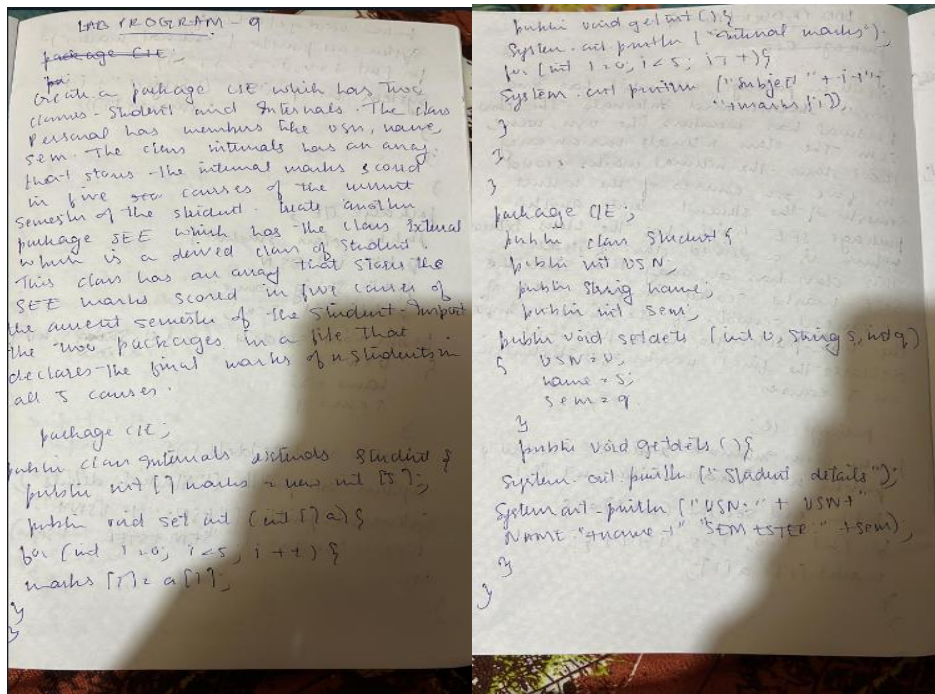 LAB PROGRAM - 9
package CIE;
Create a package CIE which has two
classes - Student and Internals. The class
Personal has members like usn, name,
sem. The class internals has an array
that stores the internal marks scored
in five courses of the current
semester of the student. Create another
package SEE which has the class External
which is a derived class of Student.
This class has an array that stores the
SEE marks scored in five courses of
the current semester of the student. Import
the two packages in a file that
declares the final marks of n students in
all 5 courses.
package CIE;
public class Internals extends Student {
public int [] marks = new int [5];
public void set int (int [] a) {
for (int i=0; i<5; i++) {
marks [i] = a[i];
}
}
public void get int () {
System.out.println ("internal marks");
for (int i=0; i<5; i++) {
System.out.println ("Subject" + i +":
"+marks [i]);
}
}
}
package CIE;
public class Student {
public int USN;
public String name;
public int sem;
public void setdets (int u, String s, int q)
{ USN = u;
name = s;
sem = q
}
public void getdets () {
System.out.println ("Student details");
System.out.println ("USN:" + USN+"
NAME "+name+" "SEM +sem),
}
}